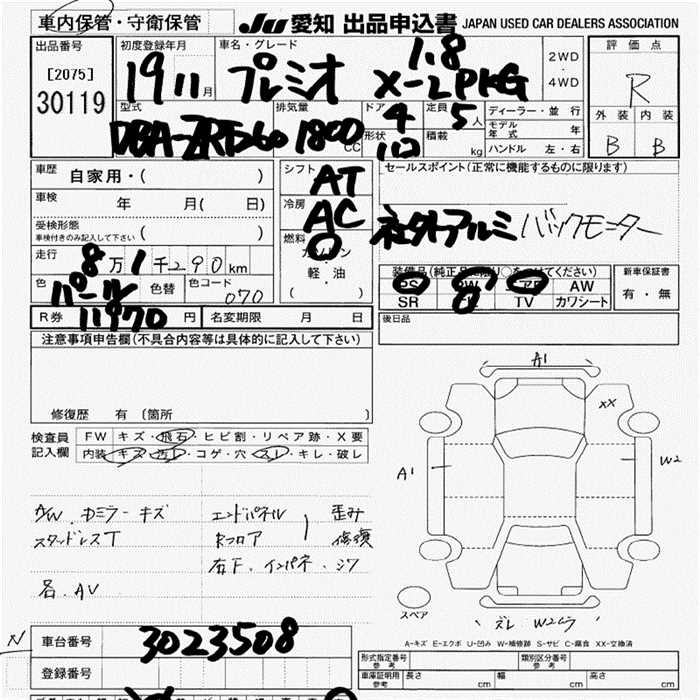 車内保管・守衛保管 JU 愛知 出品申込書 JAPAN USED CAR DEALERS ASSOCIATION
出品番号 初度登録年月 車名・グレード 評価点
[2075] 19 11月 プレミオ 1.8 X-LPKG 2WD・4WD R
30119
型式 排気量 ドア 4 定員 5人 ディーラー・並行 外装 内装
DBA-ZRT260 1800CC 形状 積載 kg モデル年式 年 B B
ハンドル 左・右
車歴 自家用・( ) シフト AT セールスポイント(正常に機能するものに限ります)
車検 年 月( 日) 冷房 AC 社外アルミ バックモニター
受検形態
車検付きのみ記入して下さい ( ) 燃料 ガソリン
走行 8万1千290km 軽・油
装備品(純正品に限り○をつけてください) 新車保証書
色 パール 色替 色コード 070 ( ) PS PW AW 有・無
SR TV カワシート
R券 11970円 名変期限 月 日 後日品
注意事項申告欄(不具合内容等は具体的に記入して下さい)
修復歴 有 〔箇所 〕
検査員記入欄 FW キズ・飛石・ヒビ割・リペア跡・X要
内装 キズ・汚レ・コゲ・穴・スレ・キレ・破レ
A1
XX
A1
W2
カミラーキズ エンドパネル 歪み
スタッドレスT Rフロア 修復
右下、インパネ、シワ
名、AV
スペア
ズレ W2ムラ
A-キズ E-エクボ U-凹み W-補修跡 S-サビ C-腐食 XX-交換済
N
車台番号 3023508
登録番号
形式指定番号 参考 類別区分番号 参考
車庫証明用 参考 長さ cm 幅 cm 高さ cm